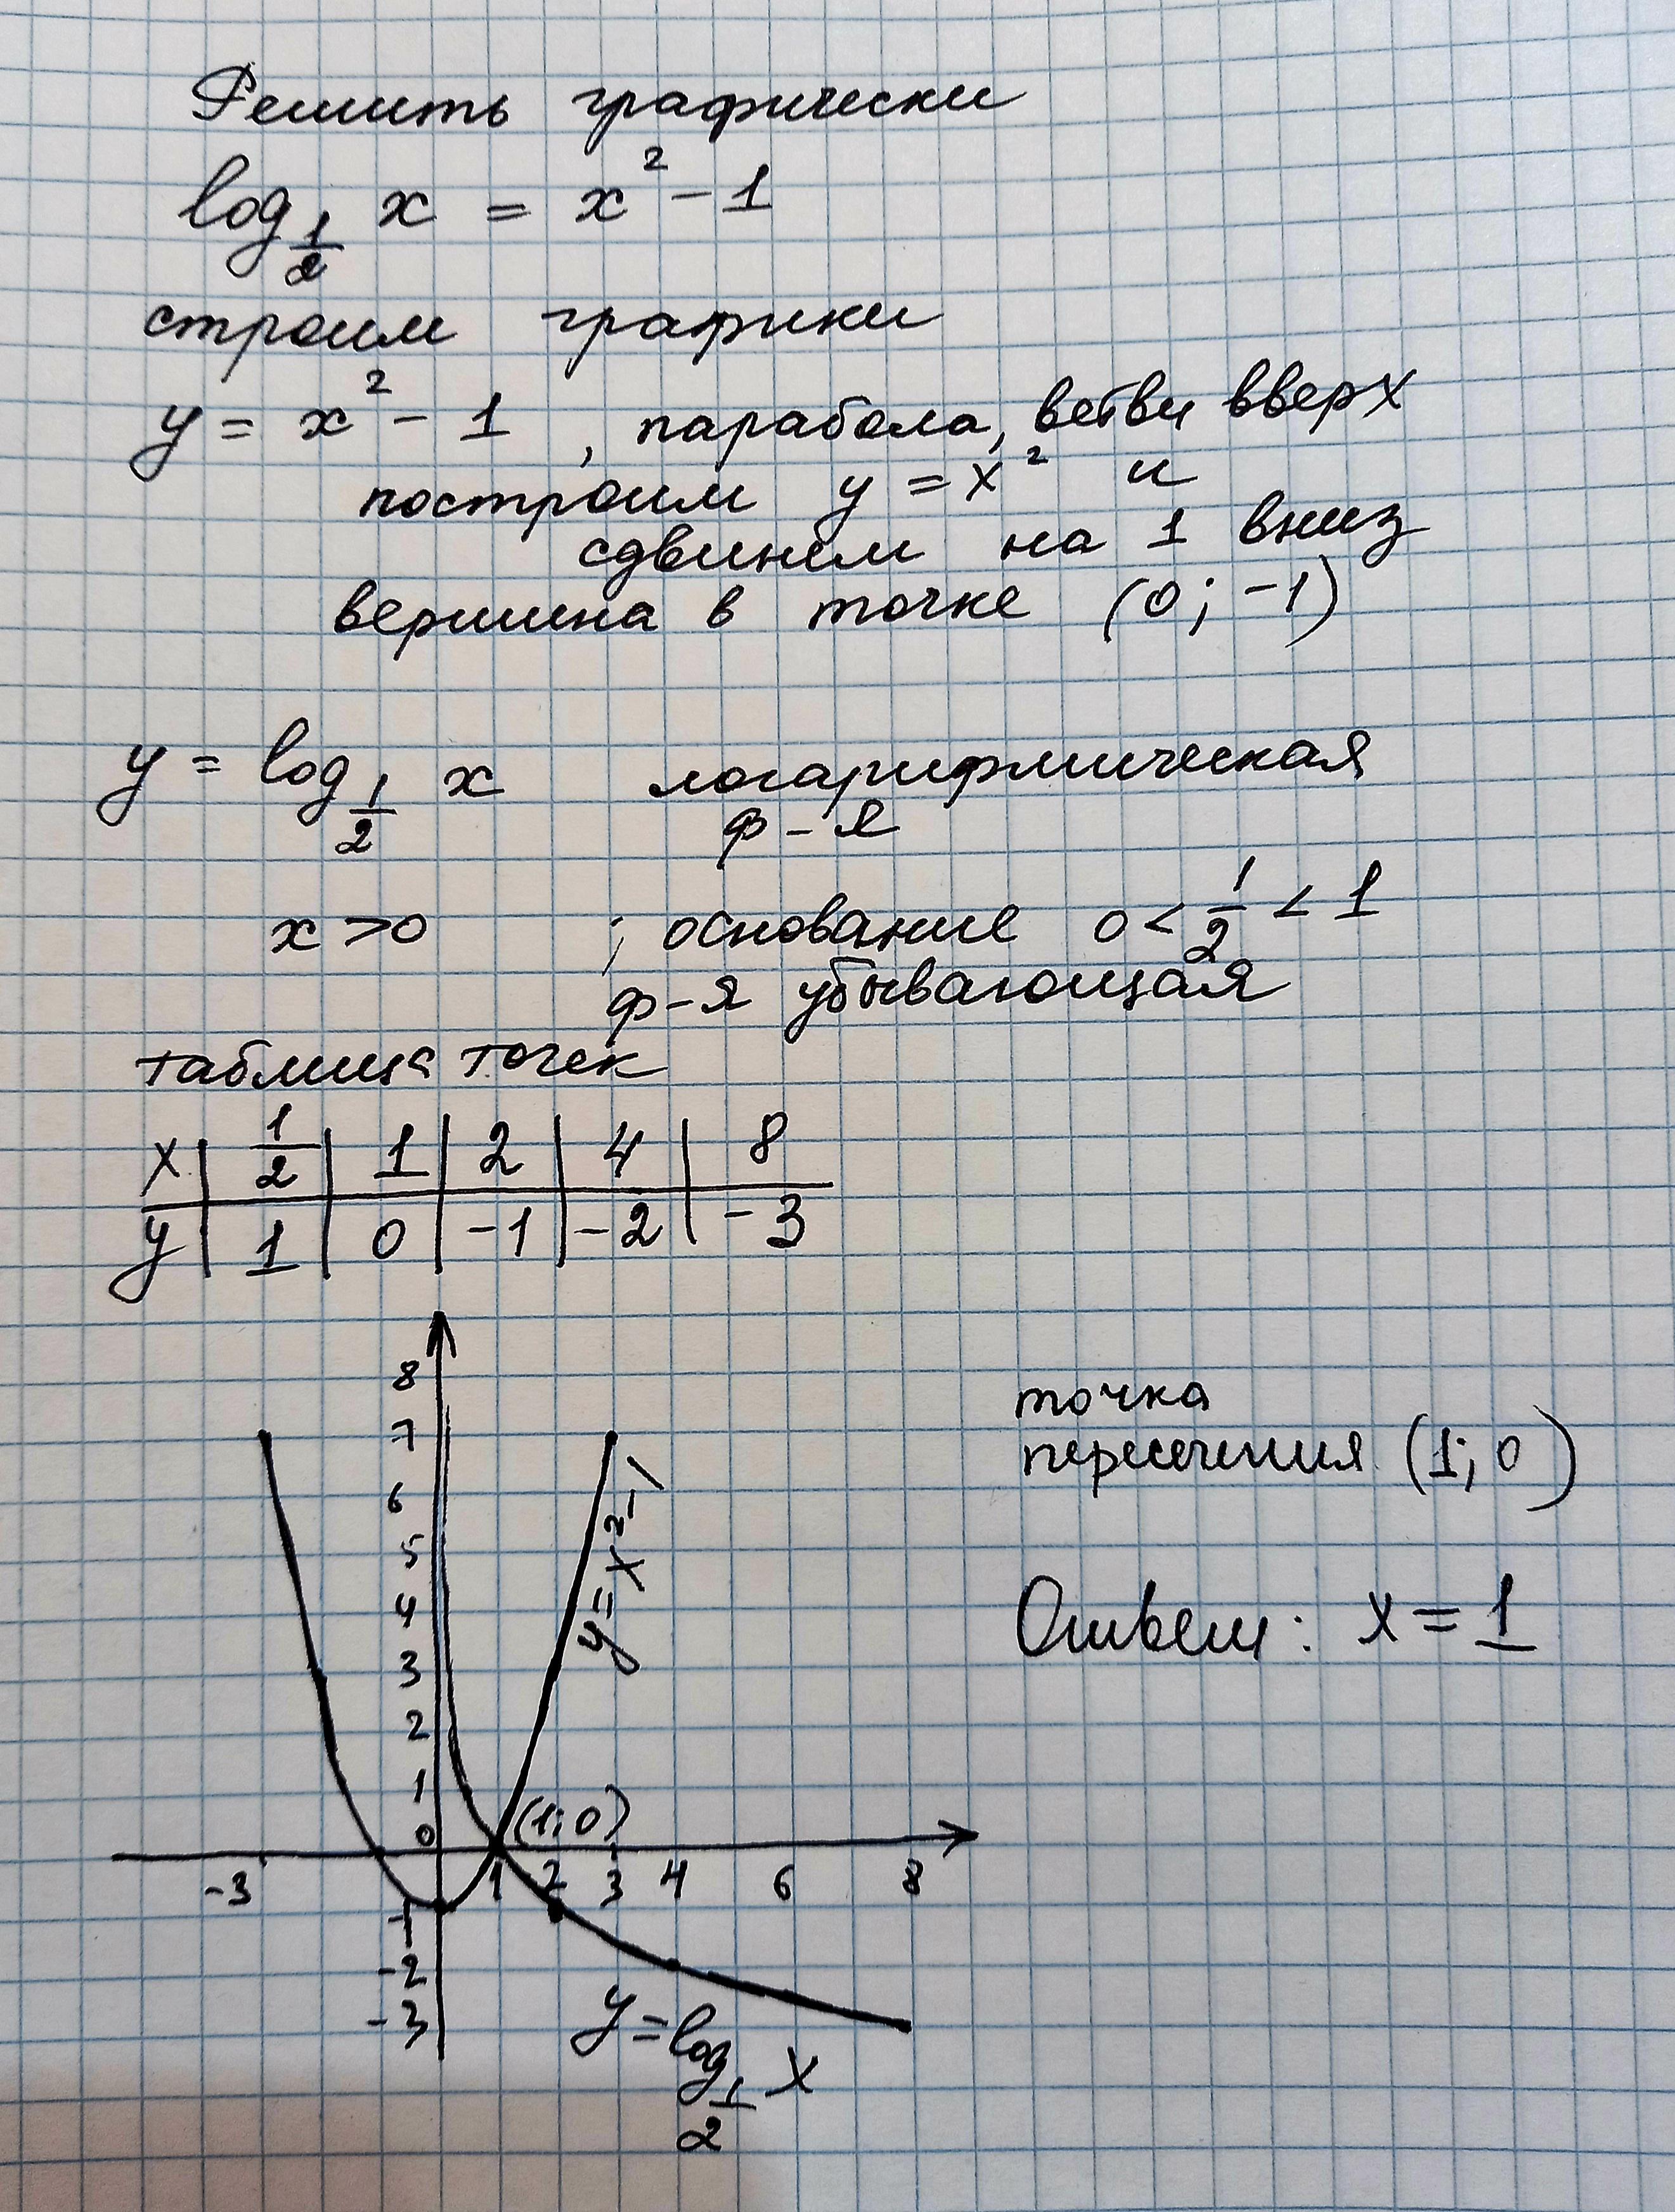 Решить графически
log 1/2 x = x² - 1
строим графики
y = x² - 1 , парабола, ветви вверх
построим y = x² и
сдвинем на 1 вниз
вершина в точке (0; -1)
y = log 1/2 x логарифмическая
ф-я
x > 0 ; основание 0 < 1/2 < 1
ф-я убывающая
таблица точек
x | 1/2 | 1 | 2 | 4 | 8
y | 1 | 0 | -1 | -2 | -3
8
7
6
5
4
3
2
1
0
-1
-2
-3
-3 1 2 3 4 6 8
(1; 0)
y = x² - 1
y = log 1/2 x
точка
пересечения (1; 0)
Ответ: x = 1